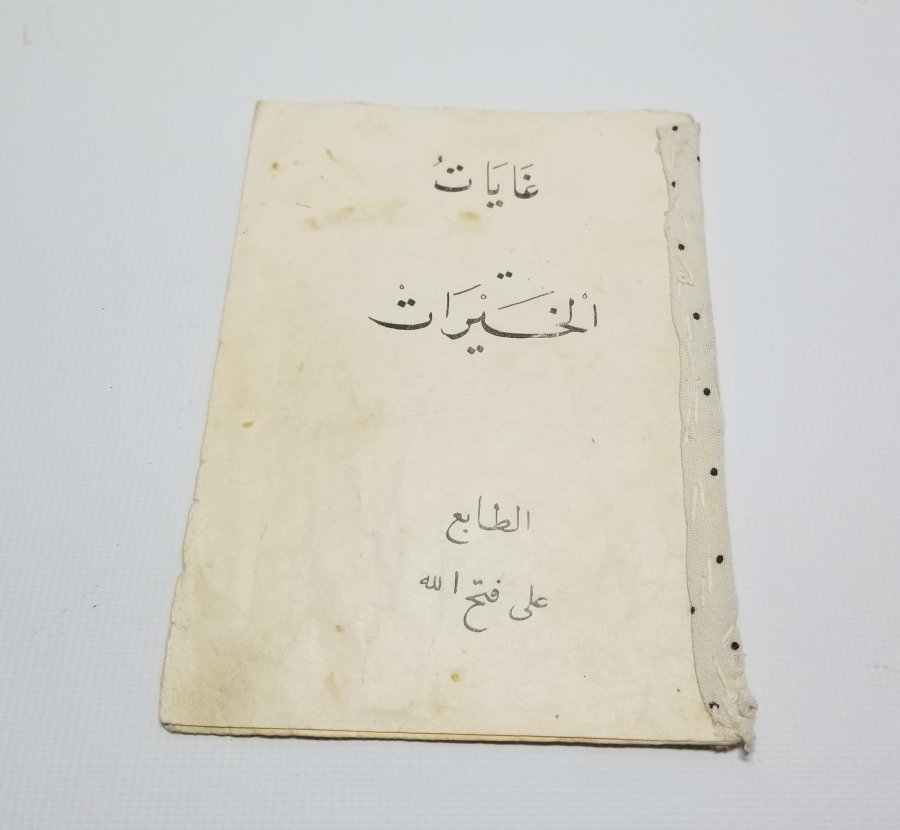 غَايَاتُ
الْخَيْرَاتْ
الطابع
على فتح الله